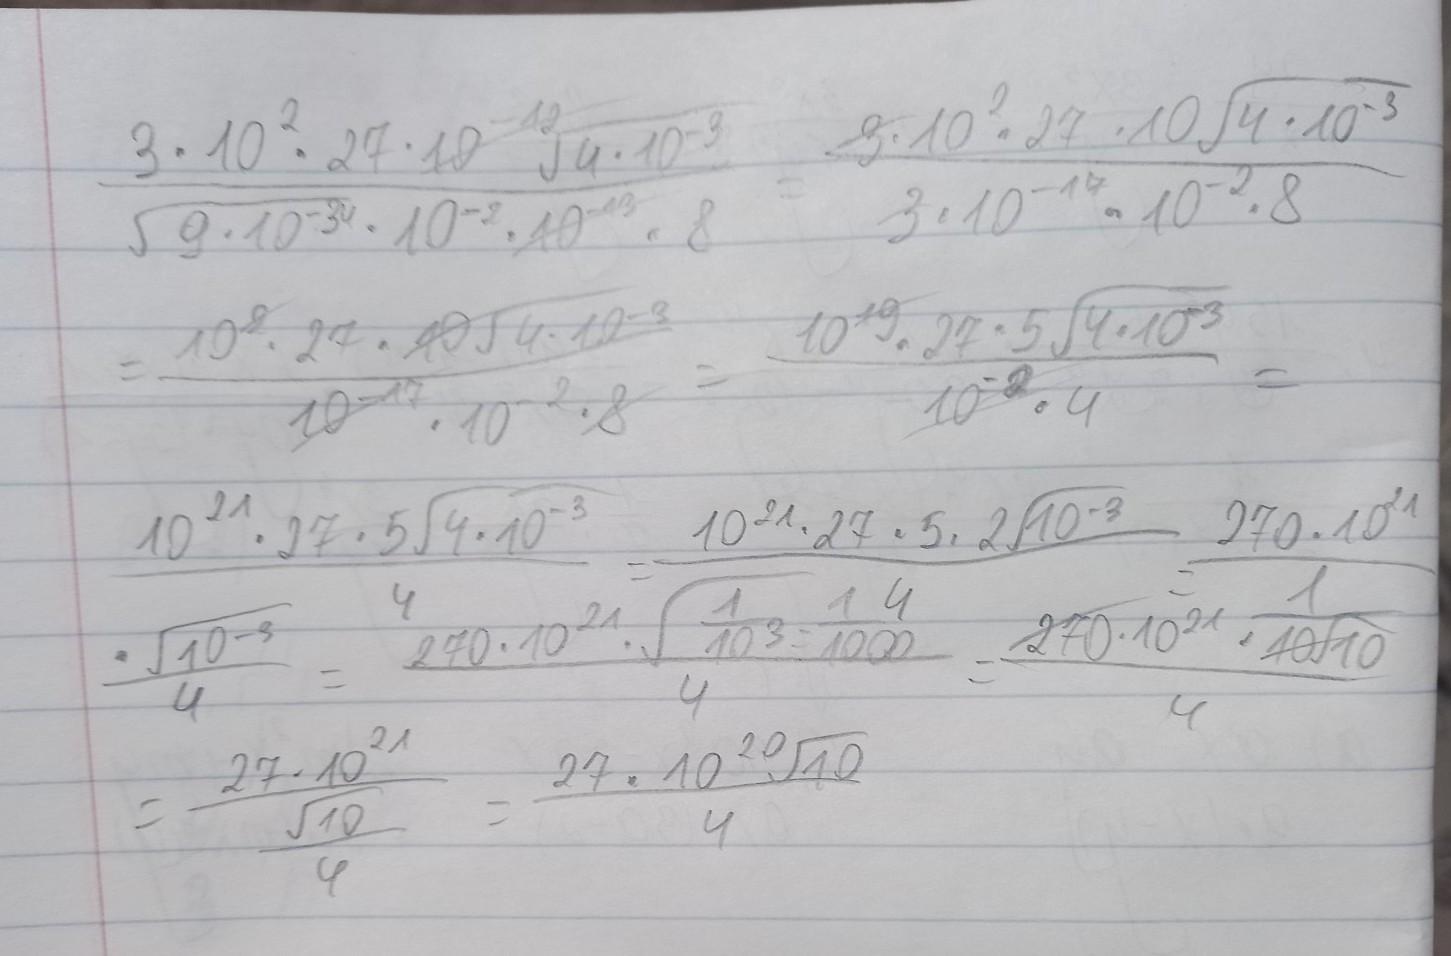 3·10²·27·10⁻¹²√4·10⁻³ / √9·10⁻³⁴·10⁻²·10⁻¹³·8 = 3·10²·27·10√4·10⁻³ / 3·10⁻¹⁷·10⁻²·8
= 10²·27·10√4·10⁻³ / 10⁻¹⁷·10⁻²·8 = 10¹⁹·27·5√4·10⁻³ / 10⁻²·4 =
10²¹·27·5√4·10⁻³ / 4 = 10²¹·27·5·2√10⁻³ / 4 = 270·10²¹ / 1
·√10⁻³ / 4 = 270·10²¹·√1/10³ = 1/1000 / 4 = 270·10²¹·1/10√10 / 4
= 27·10²¹ / √10 / 4 = 27·10²⁰√10 / 4